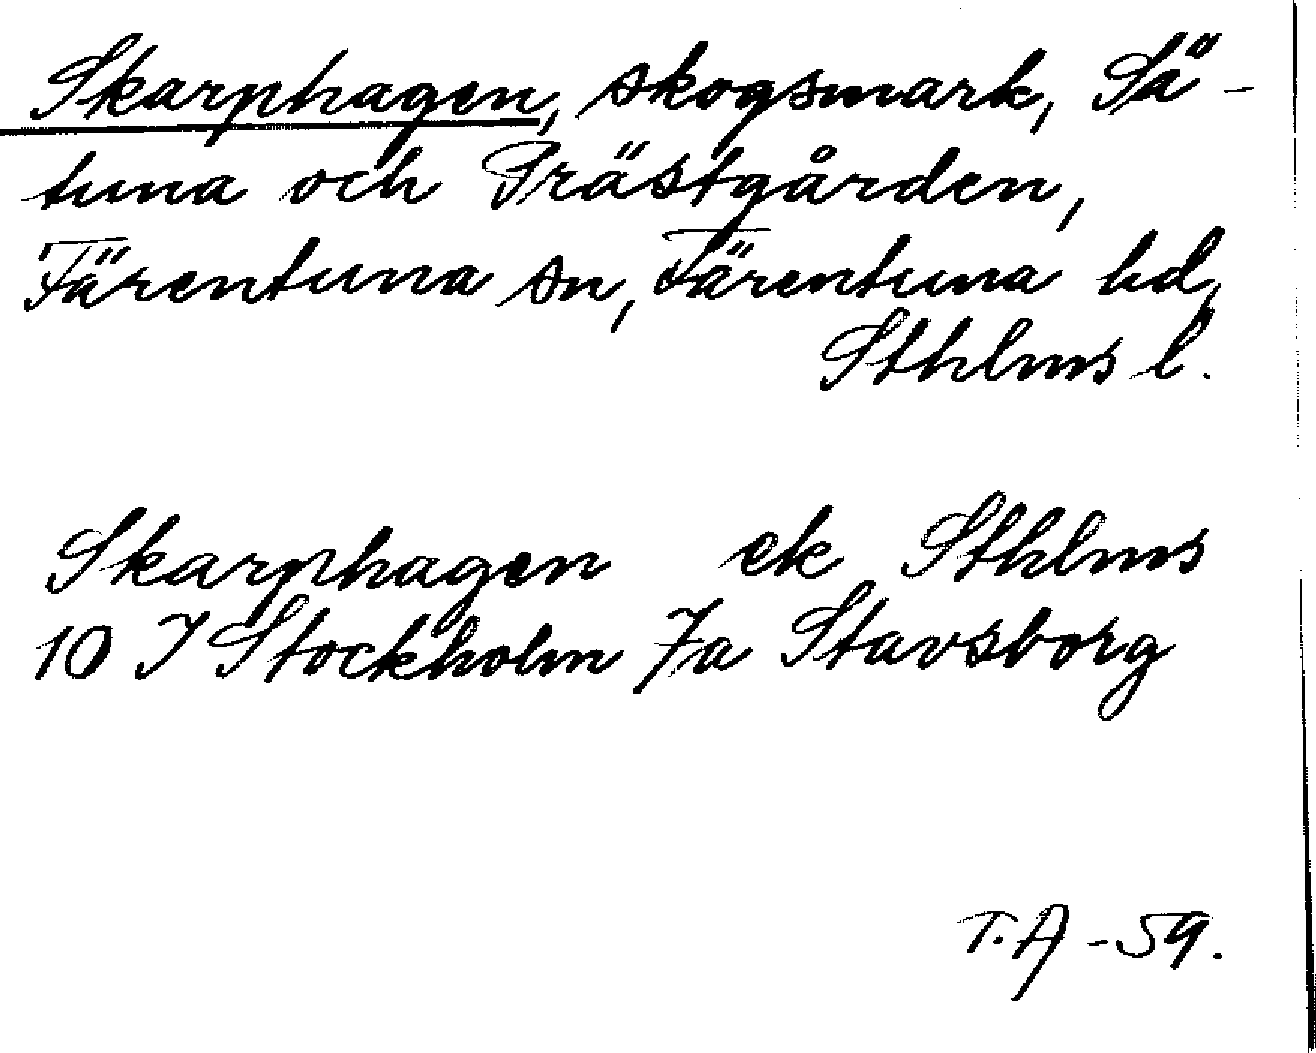 Skarphagen, skogsmark, Sä-
tuna och Prästgården,
Färentuna sn, Färentuna hd,
Sthlms l.
Skarphagen ek Sthlms
10 I Stockholm 7a Stavsborg
T.A -59.